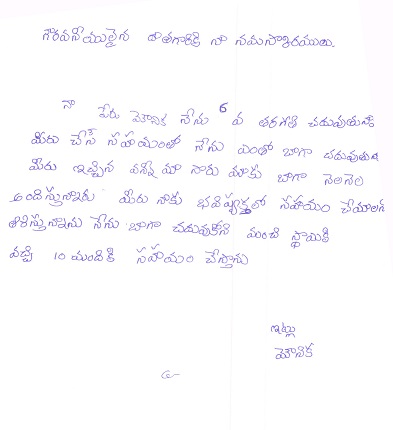 గౌరవనీయులైన దాతగారికి నా నమస్కారములు.
నా పేరు మౌనిక నేను 6 వ తరగతి చదువుతున్నా
మీరు చేసే సహాయంతో నేను ఎంతో బాగా చదువుతున
మీరు ఇచ్చిన వన్నీ మా సారు మాకు బాగా నెలనెల
అందిస్తున్నారు మీరు నాకు భవిష్యత్తులో సహాయం చేయాలని
ఆశిస్తున్నాను నేను బాగా చదువుకొని మంచి స్థాయికి
వచ్చి 10 మందికి సహాయం చేస్తాను
ఇట్లు
మౌనిక